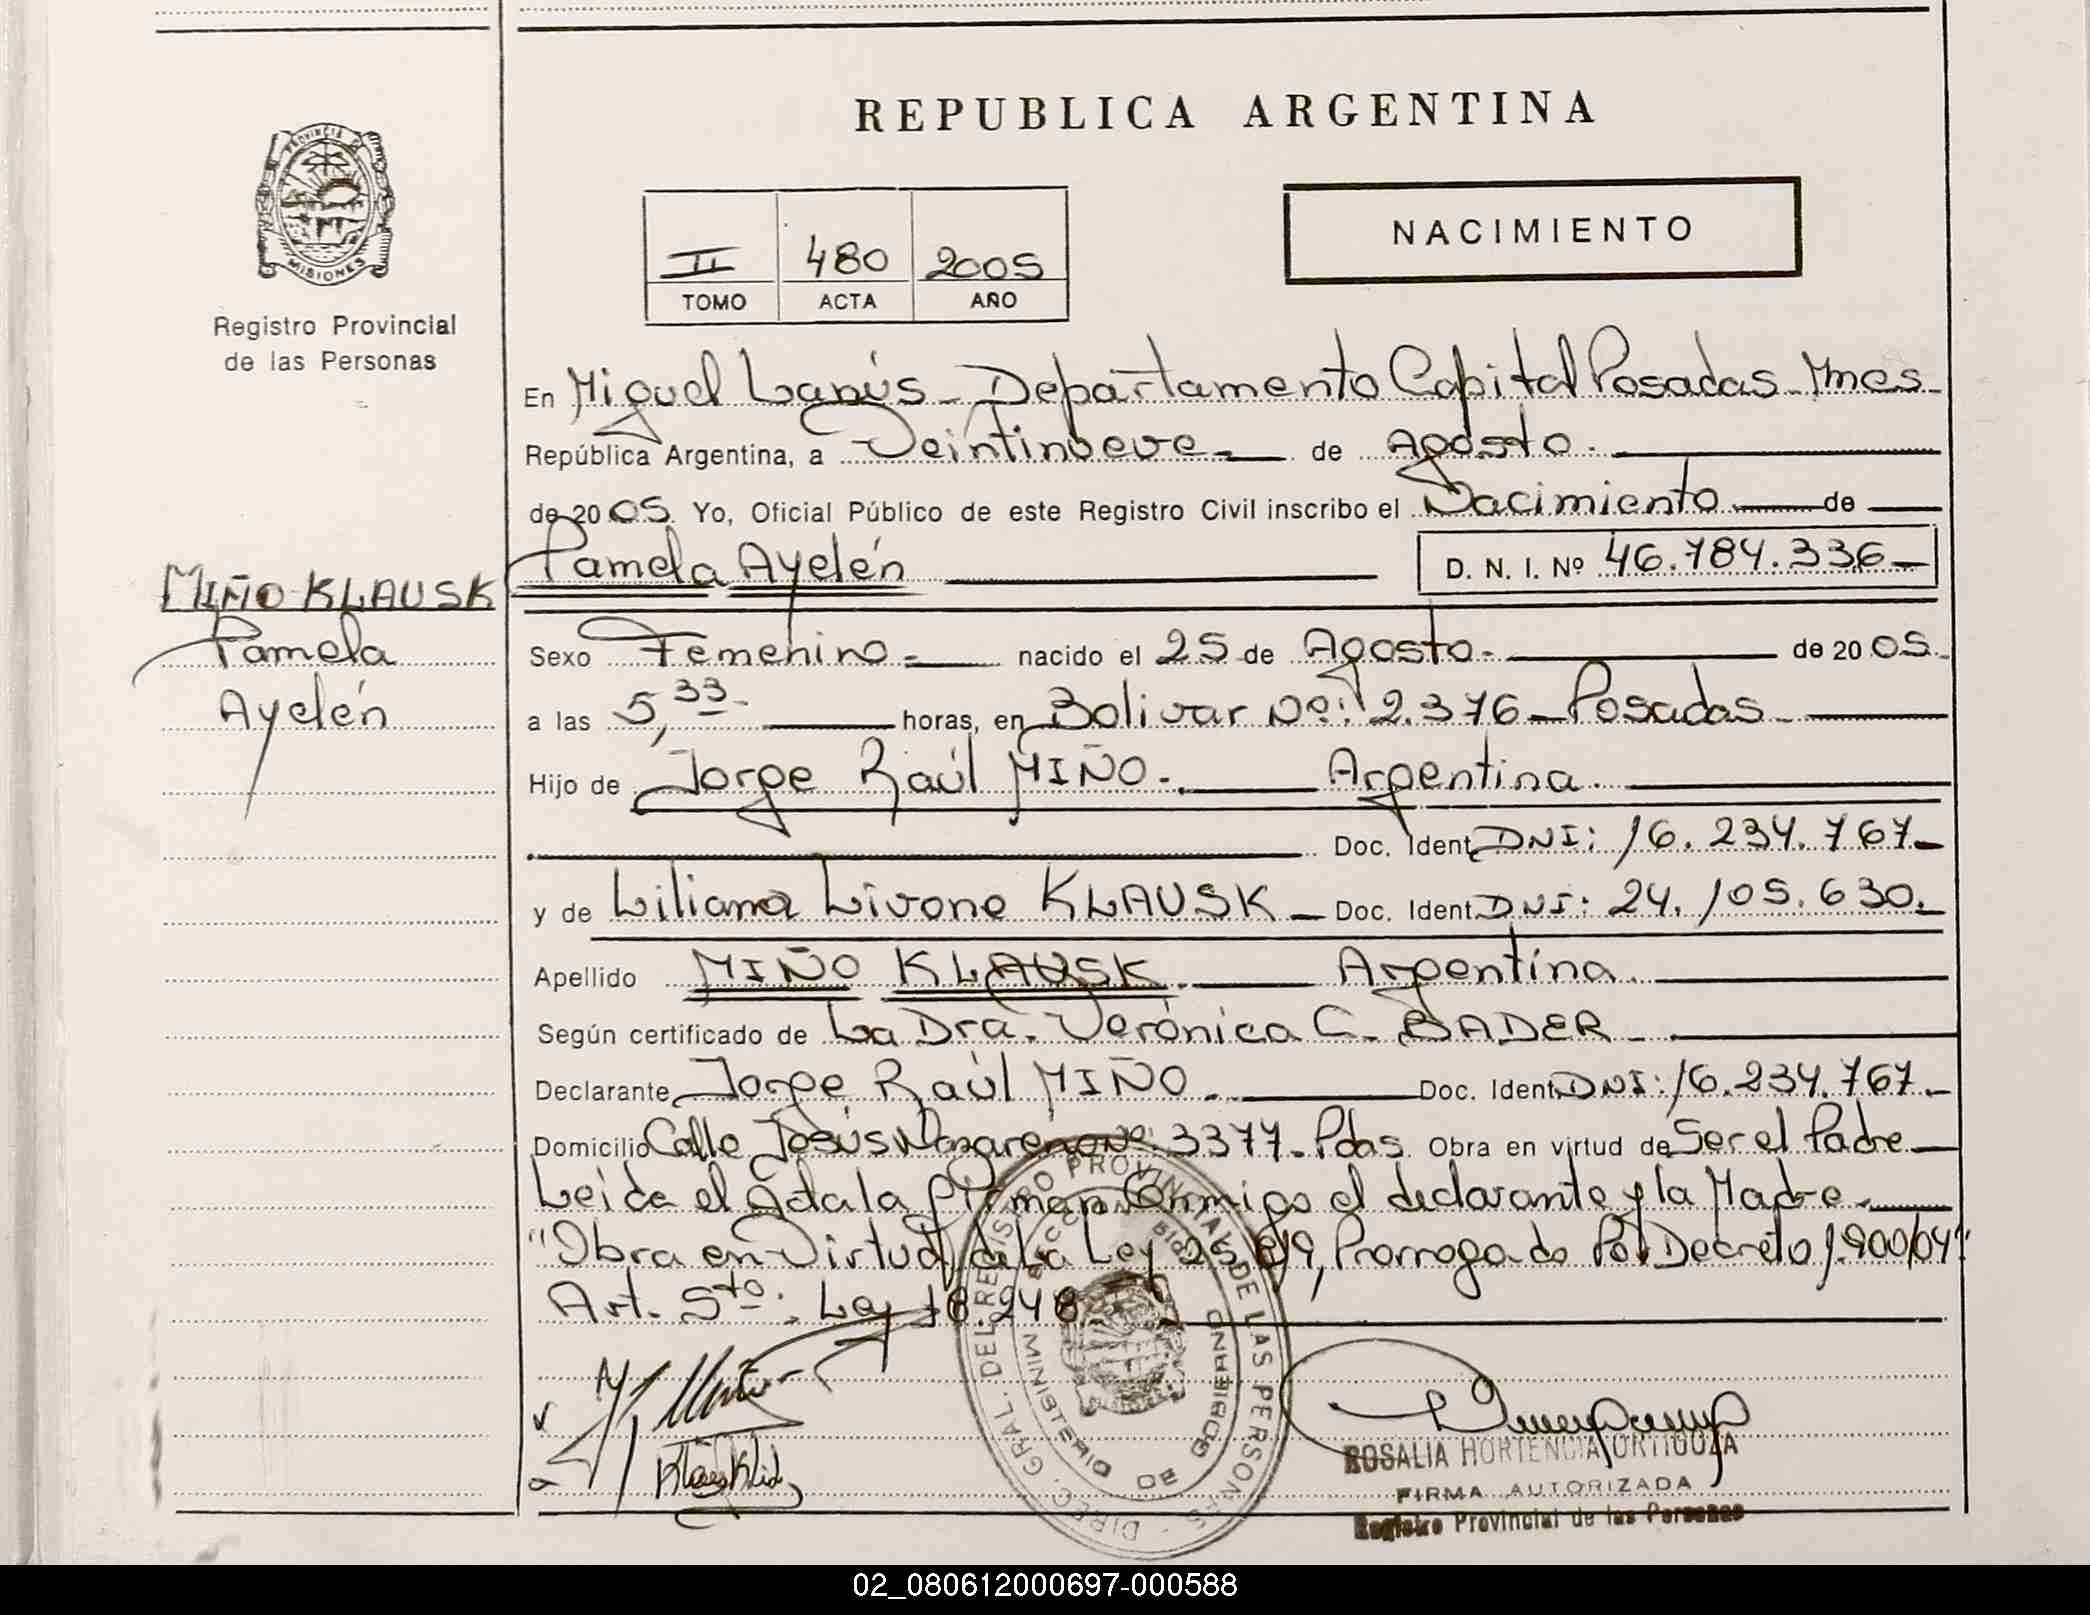 REPUBLICA ARGENTINA
PROVINCIA DE
MISIONES
Registro Provincial
de las Personas
II 480 2005
TOMO ACTA AÑO
NACIMIENTO
En Miguel Lanús - Departamento Capital Posadas - Mnes -
República Argentina, a Veintinueve - de Agosto.
de 2005. Yo, Oficial Público de este Registro Civil inscribo el Nacimiento de
Pamela Ayelén D. N. I. Nº 46.784.336 -
MIÑO KLAUSK
Pamela
Ayelén
Sexo Femenino - nacido el 25 de Agosto - de 2005.
a las 5,33 - horas, en Bolivar Nº: 2.376 - Posadas -
Hijo de Jorge Raúl MIÑO. Argentina.
Doc. Ident. DNI: 16.234.767 -
y de Liliana Livone KLAUSK - Doc. Ident. DNI: 24.105.630. -
Apellido MIÑO KLAUSK. Argentina.
Según certificado de La Dra. Verónica C. BADER -
Declarante Jorge Raúl MIÑO. Doc. Ident. DNI: 16.234.767. -
Domicilio Calle Jesús Nazareno Nº: 3377 - Pdas. Obra en virtud de Ser el Padre
Leida el Acta la firman Conmigo el declarante y la Madre.
"Obra en Virtud de La Ley 25.819, Prorrogado Por Decreto 1.900/04"
Art. 5to. Ley 18.248
DIREC. GRAL. DEL REGISTRO PROVINCIAL DE LAS PERSONAS
MINISTERIO DE GOBIERNO
ROSALIA HORTENCIA ORTIGOZA
FIRMA AUTORIZADA
Registro Provincial de las Personas
02_080612000697-000588